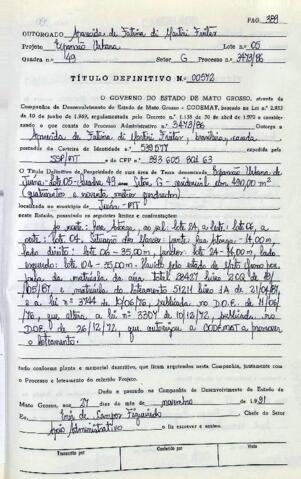 PAG. 399
OUTORGADO Aparecida de Fatima di Martini Freitas
Projeto Expansão Urbana Lote n.º 05
Quadra n.º 49 Setor G Processo n.º 3473/86
TÍTULO DEFINITIVO N.º 00572
O GOVERNO DO ESTADO DE MATO GROSSO, através da
Companhia de Desenvolvimento do Estado de Mato Grosso - CODEMAT, baseado na Lei n.º 2.913
de 10 de junho de 1969, regulamentada pelo Decreto n.º 1.138 de 30 de abril de 1970 e considerando
o que consta do Processo Administrativo n.º 3473/86 Outorga a
Aparecida de Fatima di Martini Freitas, brasileira, casada,
portador da Carteira de Identidade n.º 539577
SSP/MT e do CPF n.º 393 605 801 63
O Título Definitivo de Propriedade de sua área de Terra denominada Expansão Urbana de
Juína - Lote 05 - Quadra 49 Setor G - residencial com 490,00 m²
(quatrocentos e noventa metros quadrados)
localizada no município de Juína - MT
neste Estado, possuindo os seguintes limites e confrontações:
Ao norte: lote 24, a leste: lote 06, a
oeste: lote 04. frente - 14,00m,
lado direito: lote 06 - 35,00m, fundos: lote 24 - 14,00m, lado
esquerdo: lote 04 - 35,00m.
matrícula da área total 28427 livro 2CQ de 21/
05/87 e matrícula do loteamento 51211 livro 1A de 21/04/87,
e a lei nº 3744 de 10/06/76, publicada no D.O.E. de 11/06
/76, que altera a lei nº 3307 de 10/12/72, publicada no
D.O.E. de 26/12/72, que autorizou a CODEMAT a promover
o loteamento.
tudo conforme planta e memorial descritivo, que ficam arquivados nesta Companhia, juntamente com
o Processo e loteamento do referido Projeto.
Dado e passado na Companhia de Desenvolvimento do Estado de
Mato Grosso, aos 27 dias do mês de novembro de 1.991
Eu, Inês de Campos Figueiredo Chefe do Setor
Apoio Administrativo o fiz escrever e assino.
Transcrito por Conferido por Visto